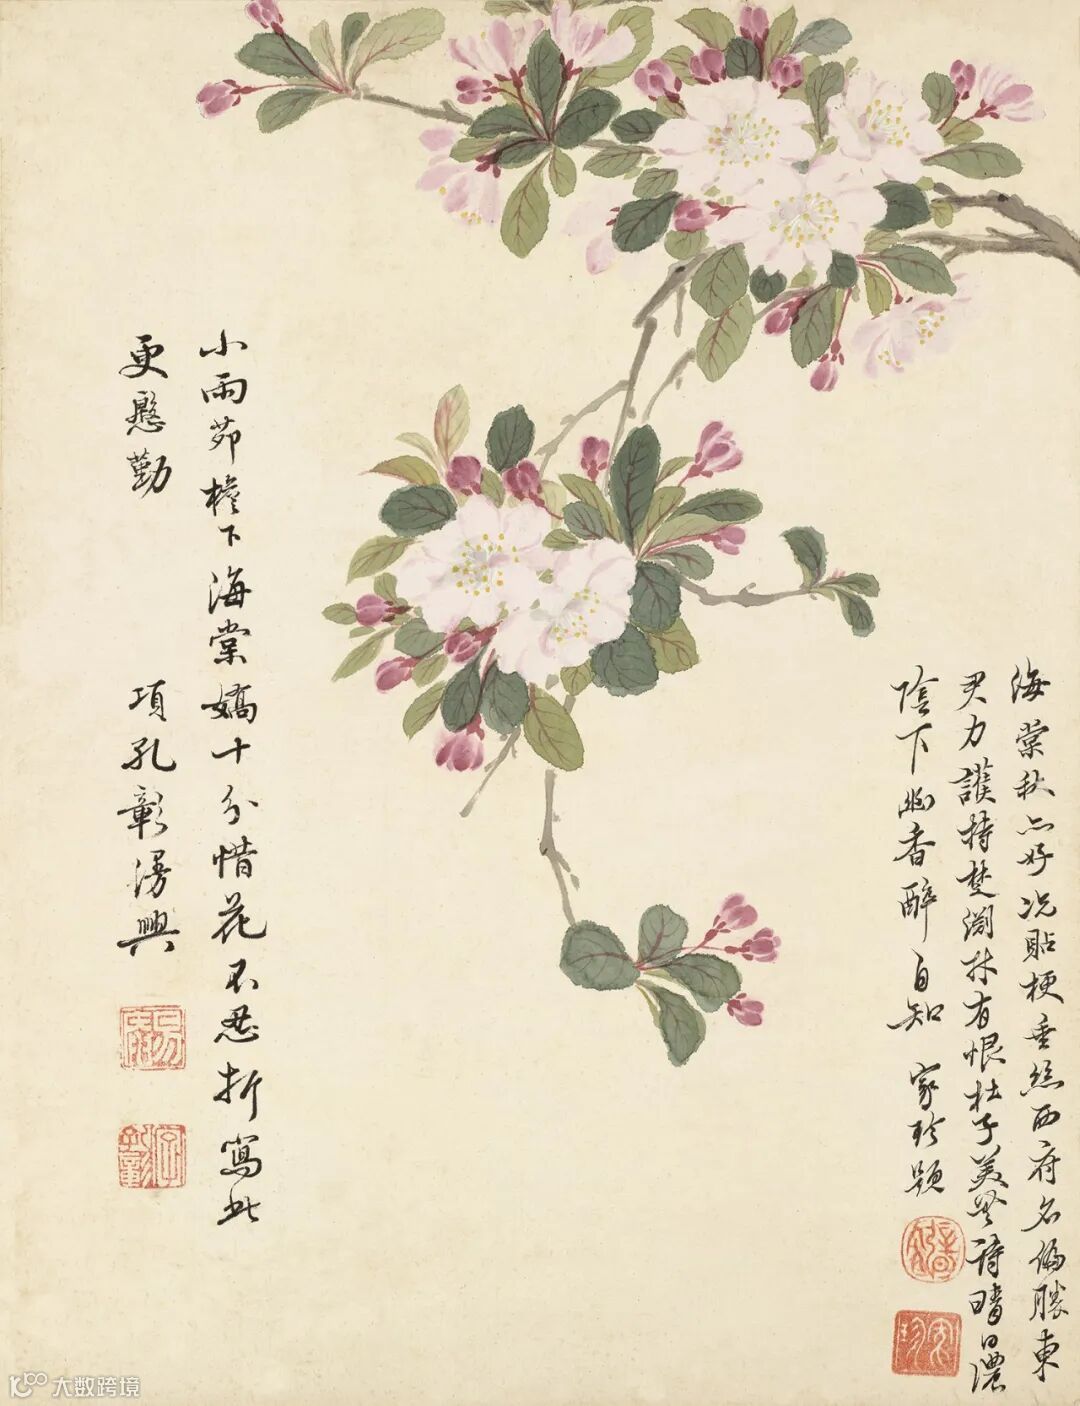 海棠秋亦好况貼梗垂絲西府名偏勝東
君力護持彭淵材有恨杜子美無詩晴日濃
陰下幽香醉自知 家珍題
小雨茆檐下海棠嬌十分惜花不忍折寫此
更慇勤 項孔彰漫興
大数跨境